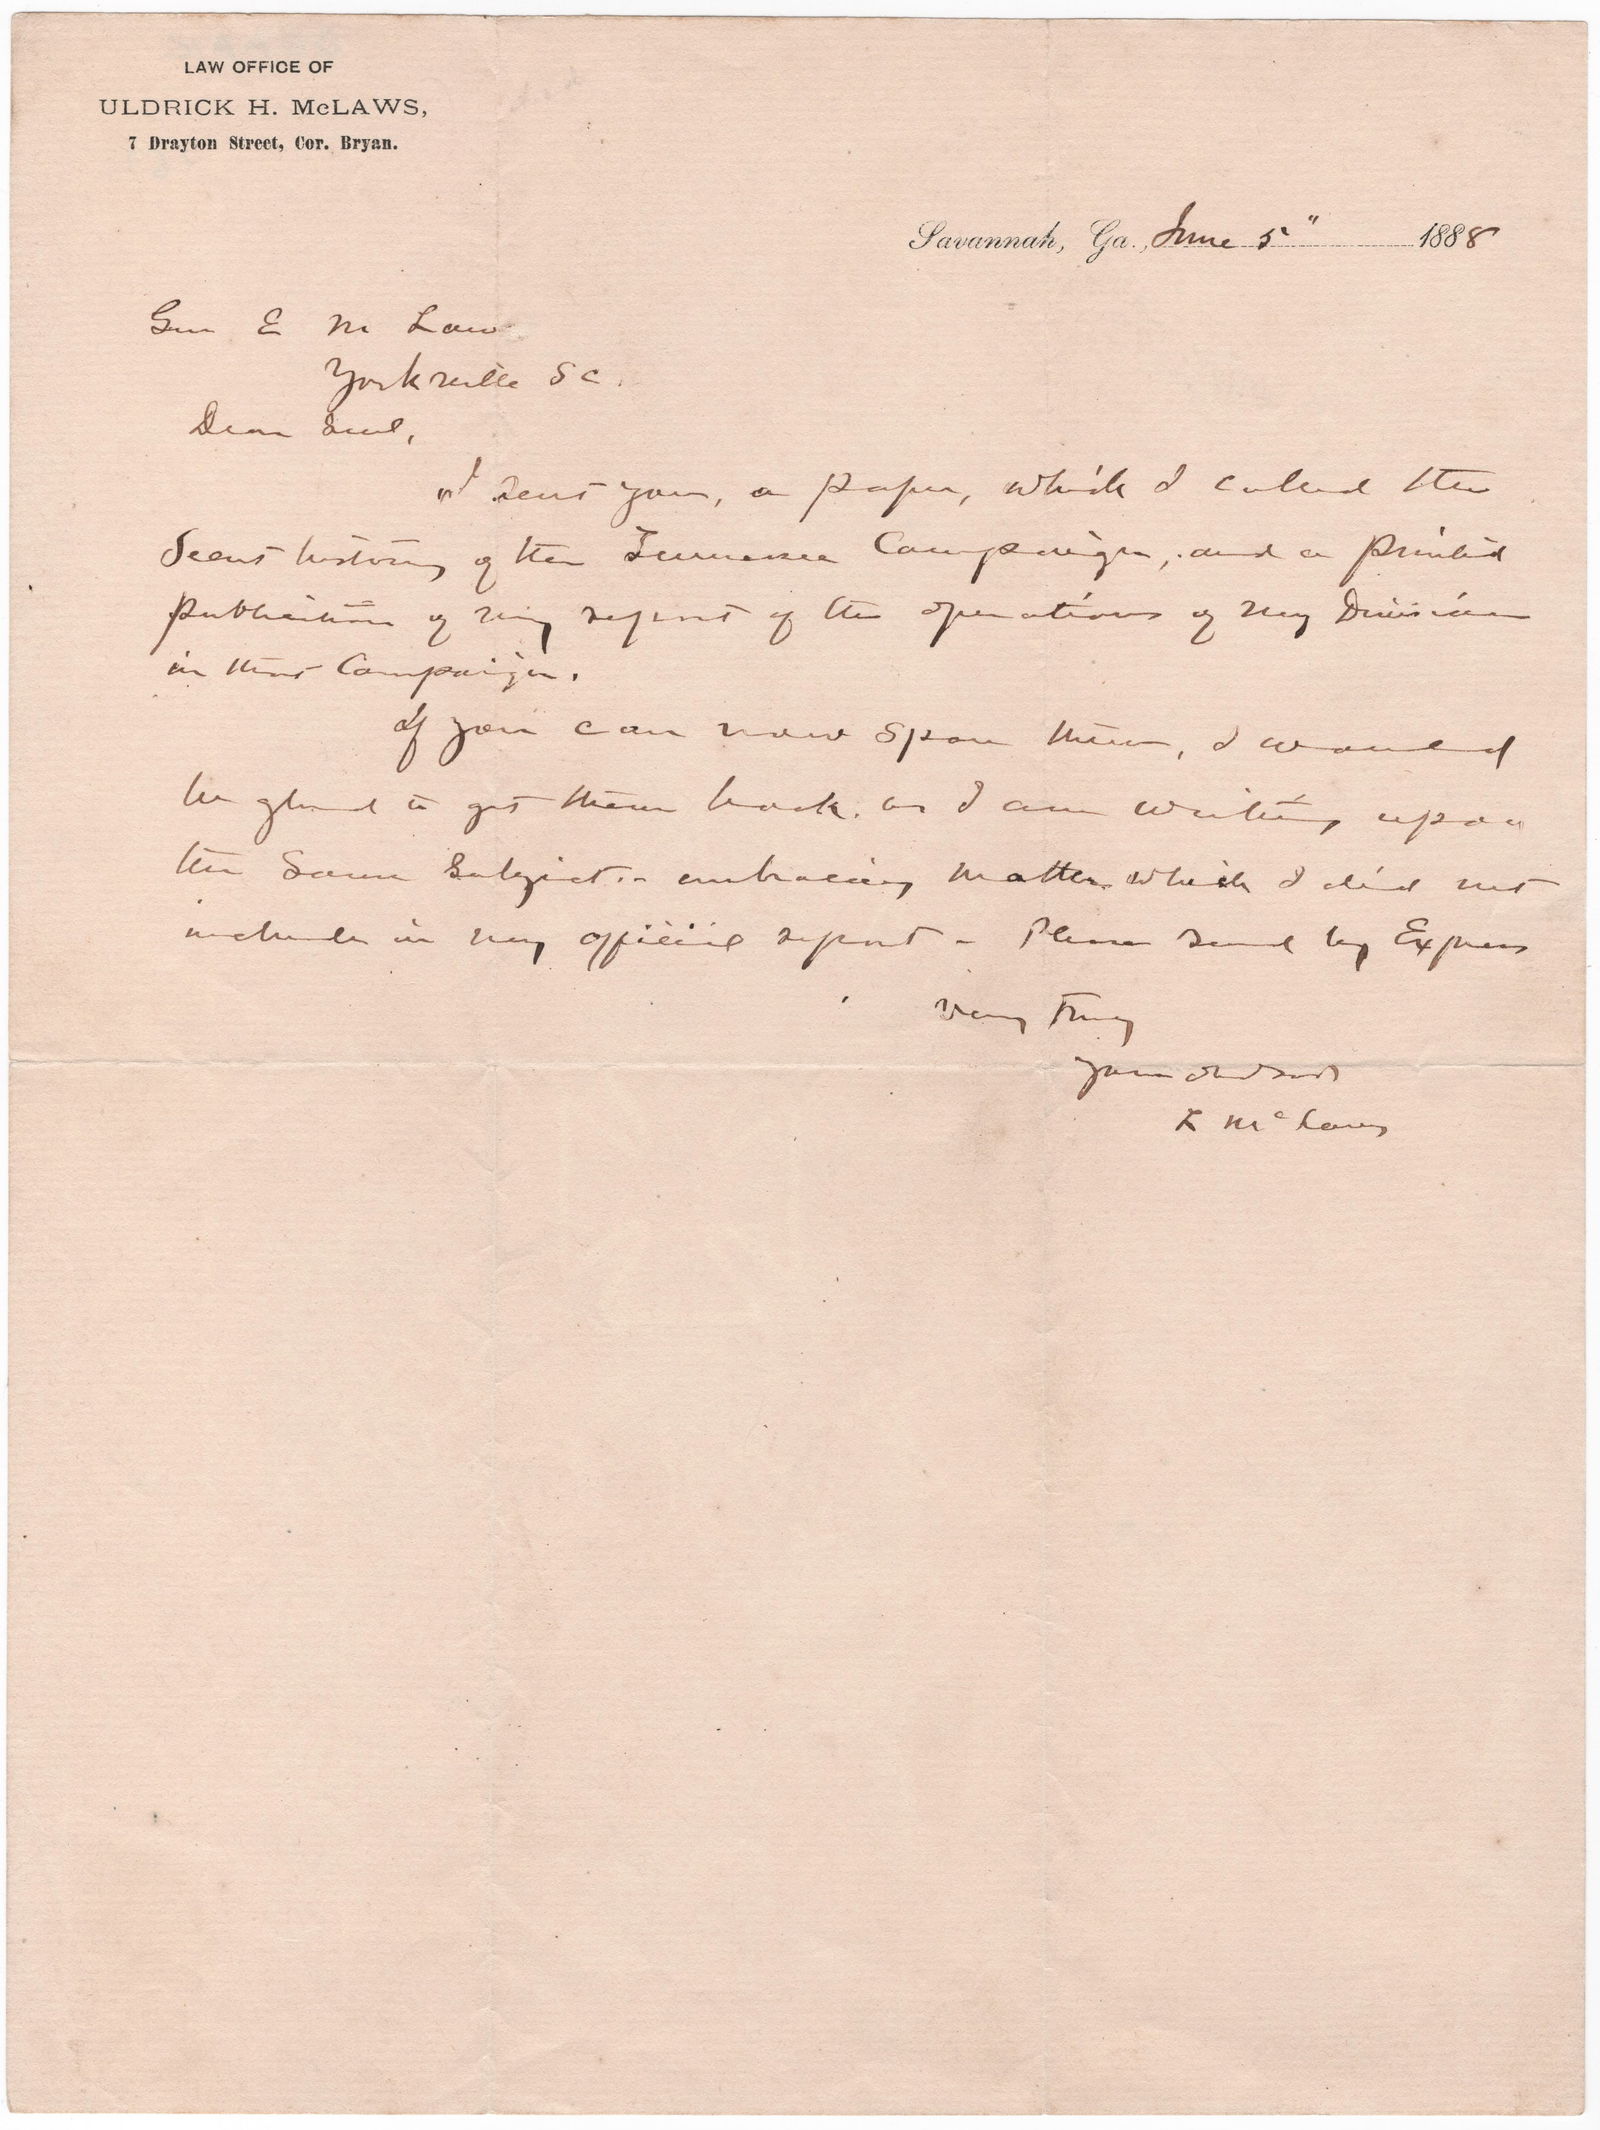 LAW OFFICE OF
ULDRICK H. McLAWS,
7 Drayton Street, Cor. Bryan.
Savannah, Ga., June 5" 1888
Gen E M Law
Yorkville S C.
Dear Genl,
I sent you, a paper, which I called the
Secret history of the Tennessee Campaign, and a printed
publication of my report of the operations of my Division
in that Campaign.
If you can now spare them, I would
be glad to get them back. as I am writing upon
the Same Subject - embracing matter which I did not
include in my official report - Please send by Express
Very Truly
Your obdt svt
L McLaws